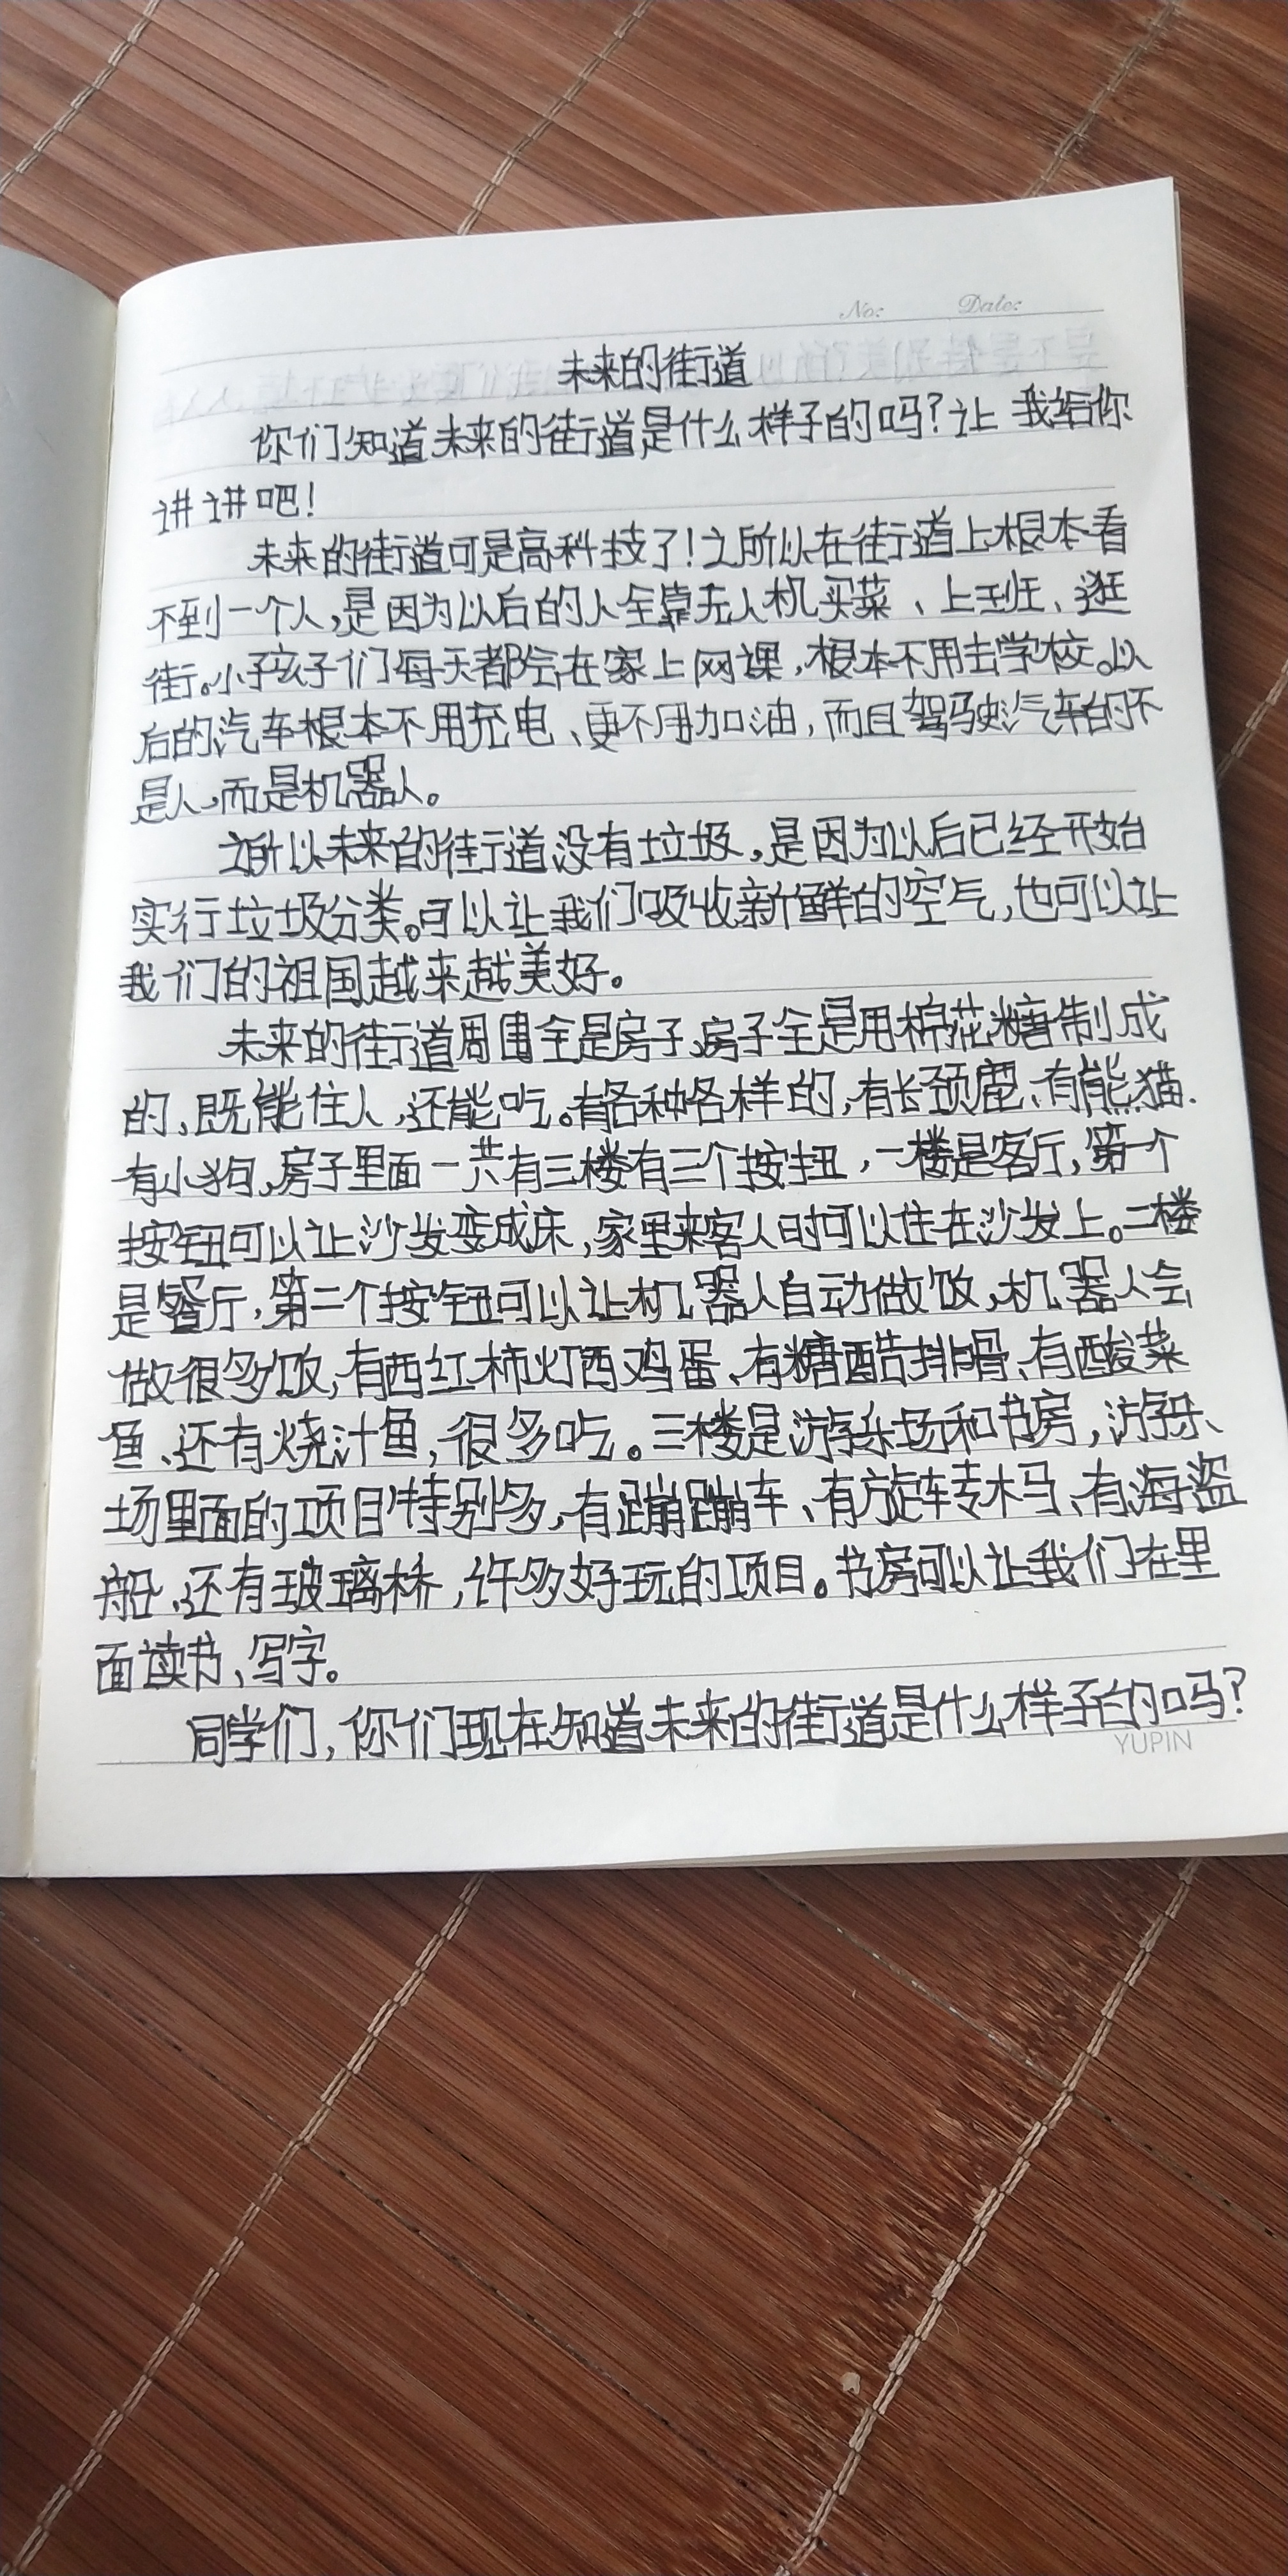 No: Date:
未来的街道
你们知道未来的街道是什么样子的吗?让我给你
讲讲吧!
未来的街道可是高科技了!之所以在街道上根本看
不到一个人,是因为以后的人全靠无人机买菜、上班、逛
街。小孩子们每天都会在家上网课,根本不用去学校。以
后的汽车根本不用充电、更不用加油,而且驾驶汽车的不
是人,而是机器人。
之所以未来的街道没有垃圾,是因为以后已经开始
实行垃圾分类。可以让我们吸收新鲜的空气,也可以让
我们的祖国越来越美好。
未来的街道周围全是房子,房子全是用棉花糖制成
的,既能住人,还能吃。有各种各样的,有长颈鹿、有熊猫.
有小狗,房子里面一共有三楼有三个按扭,一楼是客厅,第一个
按钮可以让沙发变成床,家里来客人时可以住在沙发上。二楼
是餐厅,第二个按钮可以让机器人自动做饭,机器人会
做很多饭,有西红柿炒西鸡蛋、有糖醋排骨、有酸菜
鱼、还有烧汁鱼,很多吃。三楼是游乐场和书房,游乐
场里面的项目特别多,有蹦蹦车、有旋转木马、有海盗
船、还有玻璃桥,许多好玩的项目。书房可以让我们在里
面读书、写字。
同学们,你们现在知道未来的街道是什么样子的吗?
YUPIN